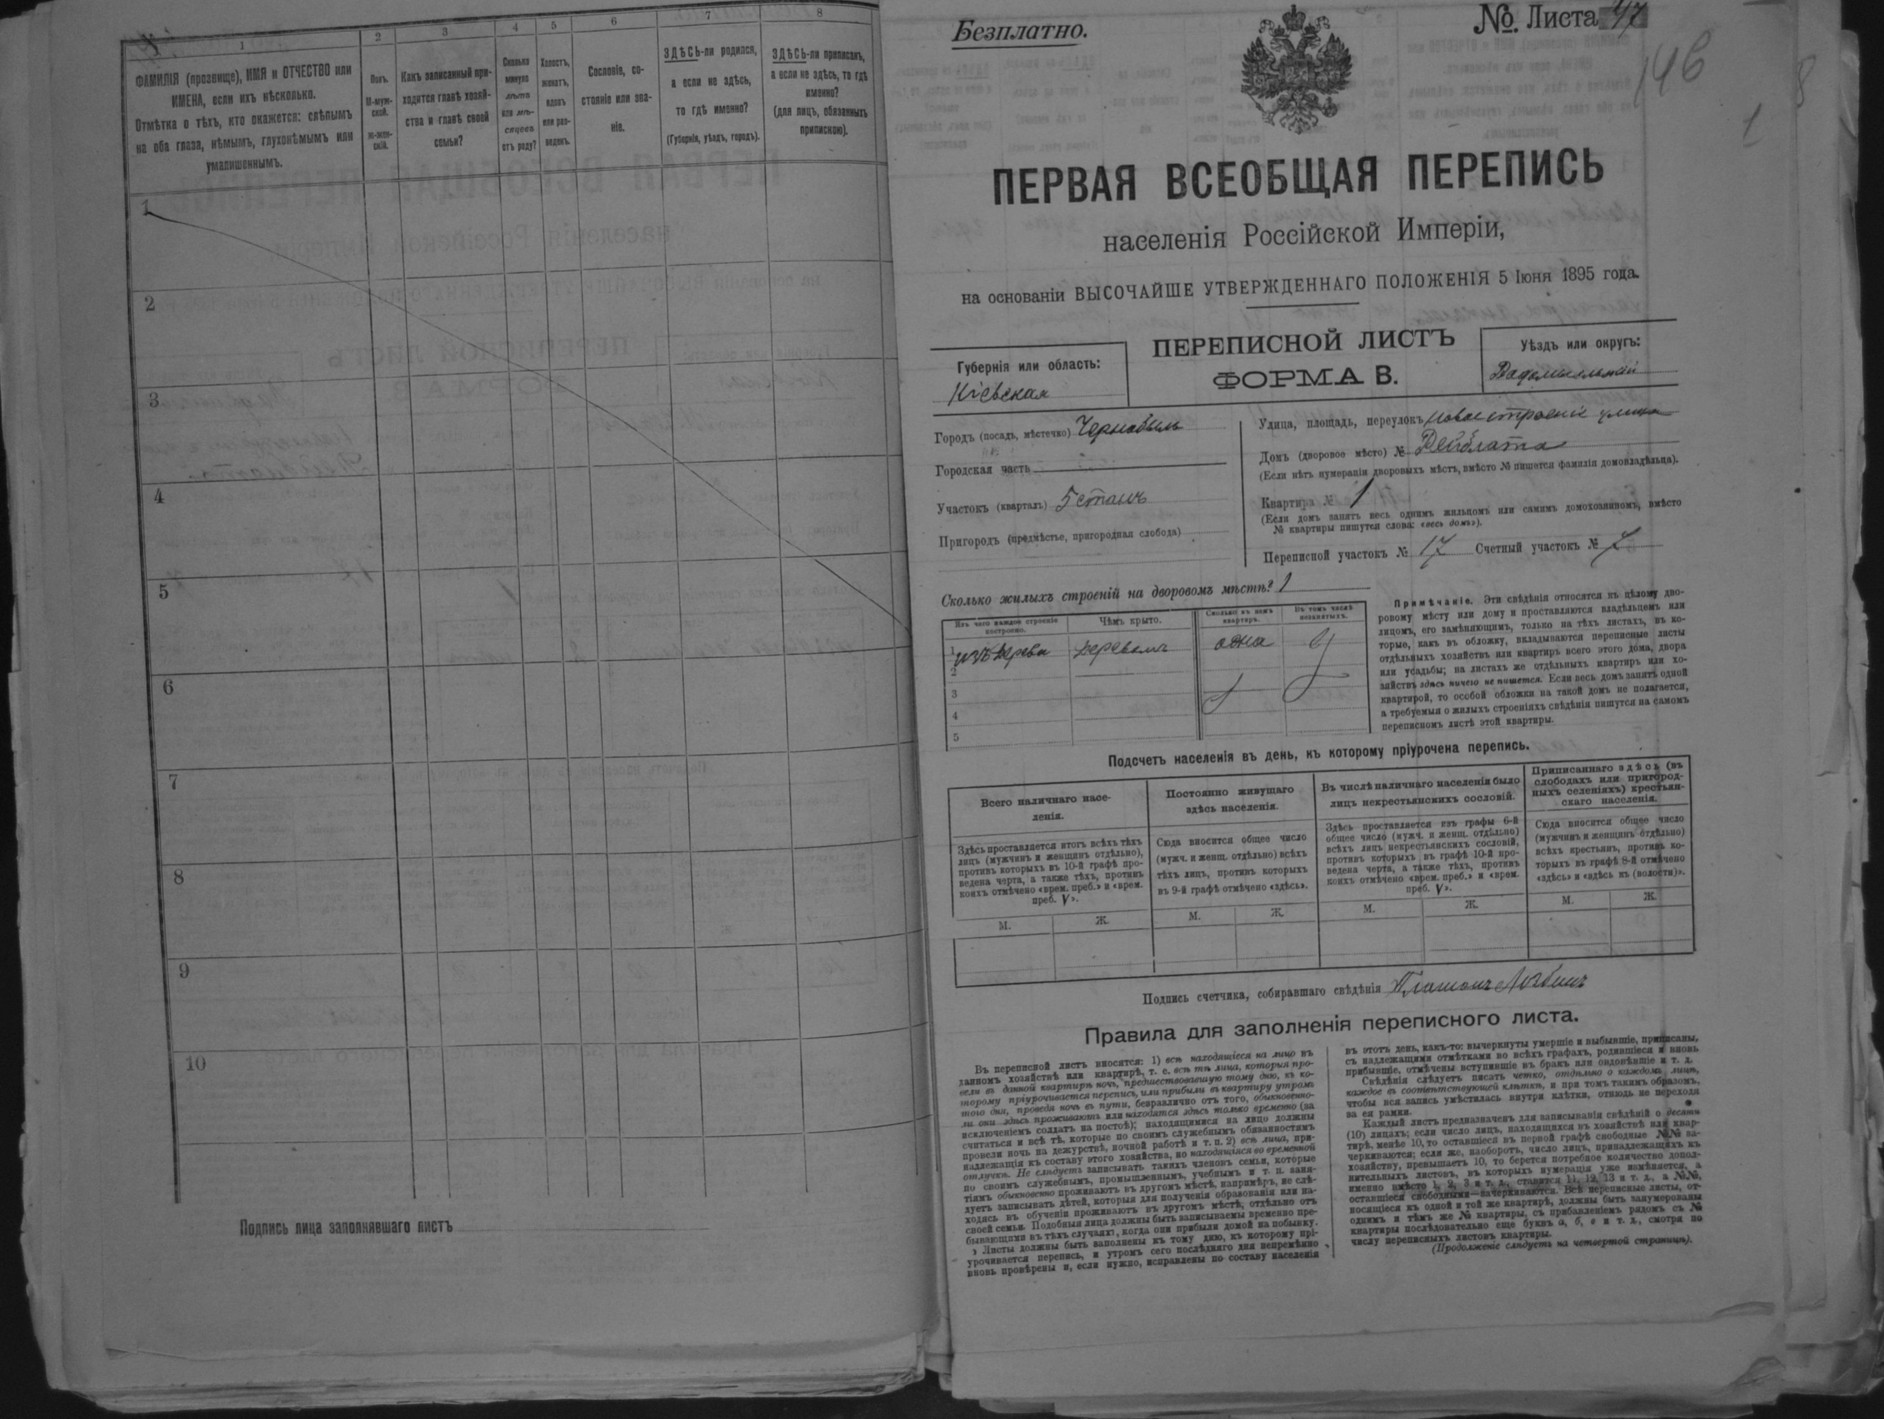 1
2
3
4
5
6
7
8
ФАМИЛІЯ (прозвище), ИМЯ и ОТЧЕСТВО или
ИМЕНА, если ихъ нѣсколько.
Отмѣтка о тѣхъ, кто окажется: слѣпымъ
на оба глаза, нѣмымъ, глухонѣмымъ или
умалишеннымъ.
Полъ.
М-муж-
ской.
ж-жен-
скій.
Какъ записанный при-
ходится главѣ хозяй-
ства и главѣ своей
семьи?
Сколько
минуло
лѣтъ
или мѣ-
сяцевъ
отъ роду?
Холостъ,
женатъ,
вдовъ
или раз-
веденъ.
Сословіе, со-
стояніе или зва-
ніе.
ЗДѢСЬ-ли родился,
а если не здѣсь,
то гдѣ именно?
(Губернія, уѣздъ, городъ).
ЗДѢСЬ-ли приписанъ,
а если не здѣсь, то гдѣ
именно?
(для лицъ, обязанныхъ
припискою).
1
2
3
4
5
6
7
8
9
10
Подпись лица заполнявшаго листъ
Безплатно.
№ Листа 47
146
1
8
ПЕРВАЯ ВСЕОБЩАЯ ПЕРЕПИСЬ
населенія Россійской Имперіи,
на основаніи ВЫСОЧАЙШЕ УТВЕРЖДЕННАГО ПОЛОЖЕНІЯ 5 Іюня 1895 года.
Губернія или область:
Кіевская
ПЕРЕПИСНОЙ ЛИСТЪ
ФОРМА В.
Уѣздъ или округъ:
Городъ (посадъ, мѣстечко) Чернобыль
Городская часть
Участокъ (кварталъ) 5 станъ
Пригородъ (предмѣстье, пригородная слобода)
Улица, площадь, переулокъ новое строеніе улица
Домъ (дворовое мѣсто) №
(Если нѣтъ нумераціи дворовыхъ мѣстъ, вмѣсто № пишется фамилія домовладѣльца).
Квартира № 1
(Если домъ занятъ весь однимъ жильцомъ или самимъ домохозяиномъ, вмѣсто
№ квартиры пишутся слова: «весь домъ»).
Переписной участокъ № 17 Счетный участокъ № 7
Сколько жилыхъ строеній на дворовомъ мѣстѣ? 1
Изъ чего каждое строеніе
построено.
Чѣмъ крыто.
Сколько въ немъ
квартиръ.
Въ томъ числѣ
незанятыхъ.
1 изъ дерева
деревомъ
одна
2
3
4
5
Примѣчаніе. Эти свѣдѣнія относятся къ цѣлому дво-
ровому мѣсту или дому и проставляются владѣльцемъ или
лицомъ, его замѣняющимъ, только на тѣхъ листахъ, въ ко-
торые, какъ въ обложку, вкладываются переписные листы
отдѣльныхъ хозяйствъ или квартиръ всего этого дома, двора
или усадьбы; на листахъ же отдѣльныхъ квартиръ или хо-
зяйствъ здѣсь ничего не пишется. Если весь домъ занятъ одной
квартирой, то особой обложки на такой домъ не полагается,
а требуемыя о жилыхъ строеніяхъ свѣдѣнія пишутся на самомъ
переписномъ листѣ этой квартиры.
Подсчетъ населенія въ день, къ которому пріурочена перепись.
Всего наличнаго насе-
ленія.
Здѣсь проставляется итогъ всѣхъ тѣхъ
лицъ (мужчинъ и женщинъ отдѣльно),
противъ которыхъ въ 10-й графѣ про-
ведена черта, а также тѣхъ, противъ
коихъ отмѣчено «врем. преб.» и «врем.
преб. V».
Постоянно живущаго
здѣсь населенія.
Сюда вносится общее число
(мужч. и женщ. отдѣльно) всѣхъ
тѣхъ лицъ, противъ которыхъ
въ 9-й графѣ отмѣчено «здѣсь».
Въ числѣ наличнаго населенія было
лицъ некрестьянскихъ сословій.
Здѣсь проставляется изъ графы 6-й
общее число (мужч. и женщ. отдѣльно)
всѣхъ лицъ некрестьянскихъ сословій,
противъ которыхъ въ графѣ 10-й про-
ведена черта, а также тѣхъ, противъ
коихъ отмѣчено «врем. преб.» и «врем.
преб. V».
Приписаннаго здѣсь (въ
слободахъ или пригород-
ныхъ селеніяхъ) крестьян-
скаго населенія.
Сюда вносится общее число
(мужчинъ и женщинъ отдѣльно)
всѣхъ крестьянъ, противъ ко-
торыхъ въ графѣ 8-й отмѣчено
«здѣсь» и «здѣсь въ (волости)».
М. Ж. М. Ж. М. Ж. М. Ж.
Подпись счетчика, собиравшаго свѣдѣнія
Правила для заполненія переписного листа.
Въ переписной листъ вносятся: 1) всѣ находящіеся на лицо въ
данномъ хозяйствѣ или квартирѣ, т. е. всѣ тѣ лица, которыя про-
вели въ данной квартирѣ ночь, предшествовавшую тому дню, къ ко-
торому пріурочивается перепись, или прибыли въ квартиру утромъ
того дня, проведя ночь въ пути, безразлично отъ того, обыкновенно-
ли они здѣсь проживаютъ или находятся здѣсь только временно (за
исключеніемъ солдатъ на постоѣ); находящимися на лицо должны
считаться и всѣ тѣ, которые по своимъ служебнымъ обязанностямъ
провели ночь на дежурствѣ, ночной работѣ и т. п. 2) всѣ лица, при-
надлежащія къ составу этого хозяйства, но находящіяся во временной
отлучкѣ. Не слѣдуетъ записывать такихъ членовъ семьи, которые
по своимъ служебнымъ, промышленнымъ, учебнымъ и т. п. заня-
тіямъ обыкновенно проживаютъ въ другомъ мѣстѣ, напримѣръ, не слѣ-
дуетъ записывать дѣтей, которыя для полученія образованія или на-
ходясь въ обученіи проживаютъ въ другомъ мѣстѣ, отдѣльно отъ
своей семьи. Подобныя лица должны быть записываемы временно пре-
бывающими въ тѣхъ случаяхъ, когда они прибыли домой на побывку.
Листы должны быть заполнены къ тому дню, къ которому прі-
урочивается перепись, и утромъ сего послѣдняго дня непремѣнно
вновь провѣрены и, если нужно, исправлены по составу населенія
въ этотъ день, какъ-то: вычеркнуты умершіе и выбывшіе, приписаны,
съ надлежащими отмѣтками во всѣхъ графахъ, родившіеся и вновь
прибывшіе, отмѣчены вступившіе въ бракъ или овдовѣвшіе и т. д.
Свѣдѣнія слѣдуетъ писать четко, отдѣльно о каждомъ лицѣ,
каждое въ соотвѣтствующей клѣткѣ, и при томъ такимъ образомъ,
чтобы вся запись умѣстилась внутри клѣтки, отнюдь не переходя
за ея рамки.
Каждый листъ предназначенъ для записыванія свѣдѣній о десяти
(10) лицахъ; если число лицъ, находящихся въ хозяйствѣ или квар-
тирѣ, менѣе 10, то оставшіеся въ первой графѣ свободные №№ за-
черкиваются; если же, наоборотъ, число лицъ, принадлежащихъ къ
хозяйству, превышаетъ 10, то берется потребное количество допол-
нительныхъ листовъ, въ которыхъ нумерація уже измѣняется, а
именно вмѣсто 1, 2, 3 и т. д., ставится 11, 12, 13 и т. д., а №№,
оставшіеся свободными—зачеркиваются. Всѣ переписные листы, от-
носящіеся къ одной и той же квартирѣ, должны быть занумерованы
однимъ и тѣмъ же № квартиры, съ прибавленіемъ рядомъ съ №
квартиры послѣдовательно еще буквъ а, б, в и т. д., смотря по
числу переписныхъ листовъ квартиры.
(Продолженіе слѣдуетъ на четвертой страницѣ).